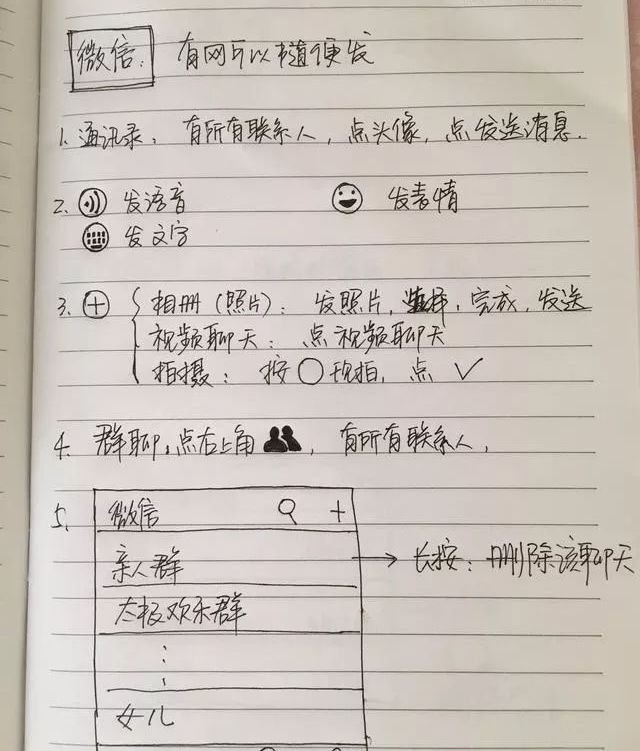 微信: 有网可以随便发
1. 通讯录: 有所有联系人, 点头像, 点发送消息.
2. 发语音 发表情
发文字
3. 相册 (照片): 发照片, 选择, 完成, 发送
视频聊天: 点视频聊天
拍摄: 按 拍, 点 ✓
4. 群聊: 点右上角 , 有所有联系人,
5. 微信 +
亲人群 → 长按: 删除该聊天
太极欢乐群
⋮
女儿